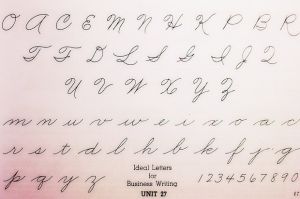 O A C E M N H K P B R
T F D L S G I J Q
U V W X Y Z
m n u v w e i x o a c
r s t d l h b k f j g
p q y z
Ideal Letters
for
Business Writing
UNIT 27
1 2 3 4 5 6 7 8 9 0